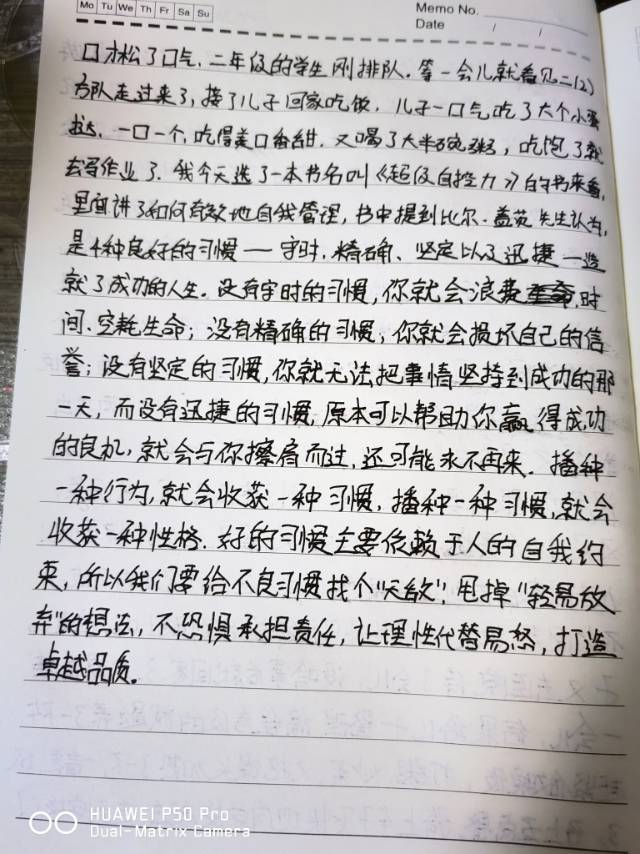 Mo Tu We Th Fr Sa Su
Memo No.
Date / /
口才松了口气，二年级的学生刚排队。等一会儿就看见二（2）
方队走过来了，接了儿子回家吃饭，儿子一口气吃了六个小蛋
挞，一口一个，吃得美口香甜，又喝了大半碗粥，吃饱了就
去写作业了。我今天选了一本书名叫《超级自控力》的书来看，
里面讲了如何有效地自我管理，书中提到比尔·盖茨先生认为，
是4种良好的习惯——守时，精确、坚定以及迅捷——造
就了成功的人生。没有守时的习惯，你就会浪费时
间、空耗生命；没有精确的习惯，你就会损坏自己的信
誉；没有坚定的习惯，你就无法把事情坚持到成功的那
一天，而没有迅捷的习惯，原本可以帮助你赢得成功
的良机，就会与你擦肩而过，还可能永不再来。播种
一种行为，就会收获一种习惯，播种一种习惯，就会
收获一种性格。好的习惯主要依赖于人的自我约
束，所以我们要给不良习惯找个“天敌”！甩掉“轻易放
弃”的想法，不恐惧承担责任，让理性代替易怒，打造
卓越品质。
HUAWEI P50 Pro
Dual-Matrix Camera